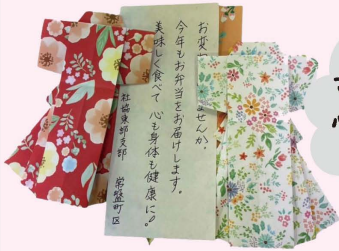 お変
ませんか。
今年もお弁当をお届けします。
美味しく食べて 心も身体も健康に!!
社協東部支部 常盤町区